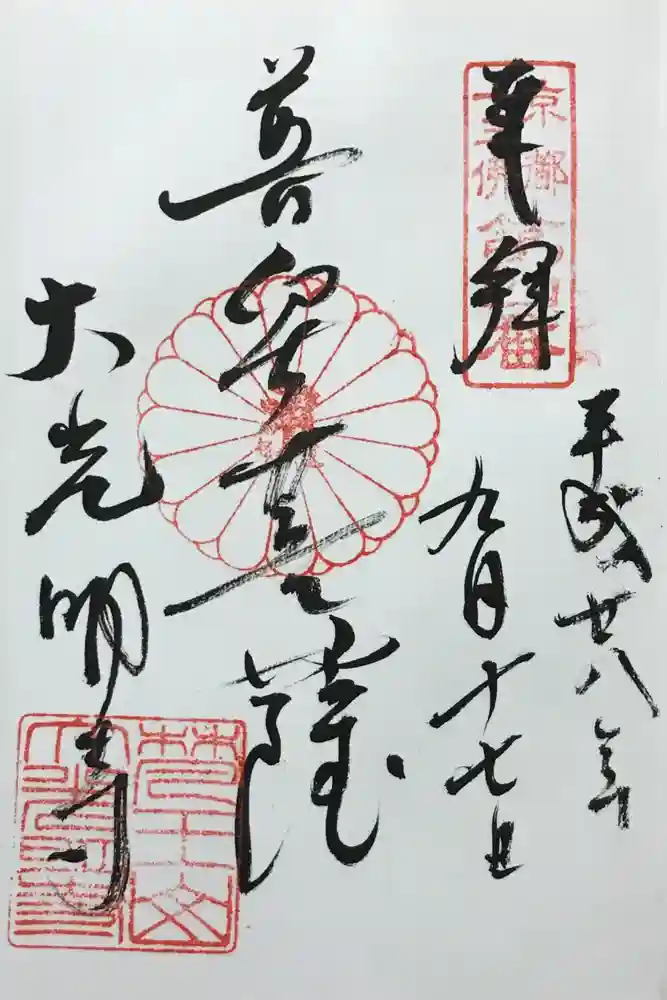 奉拝
京都
十三佛
平成廿八年
九月十七日
普賢菩薩
大光明寺